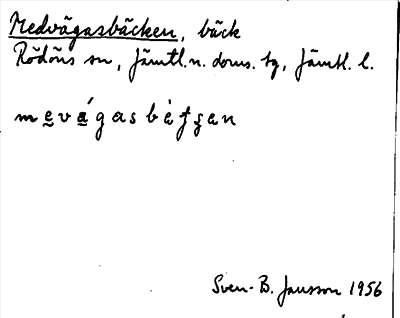 Medvågasbäcken, bäck
Rödöns sn, Jämtl. n. doms. tg, Jämtl. l.
Sven-B. Jansson 1956